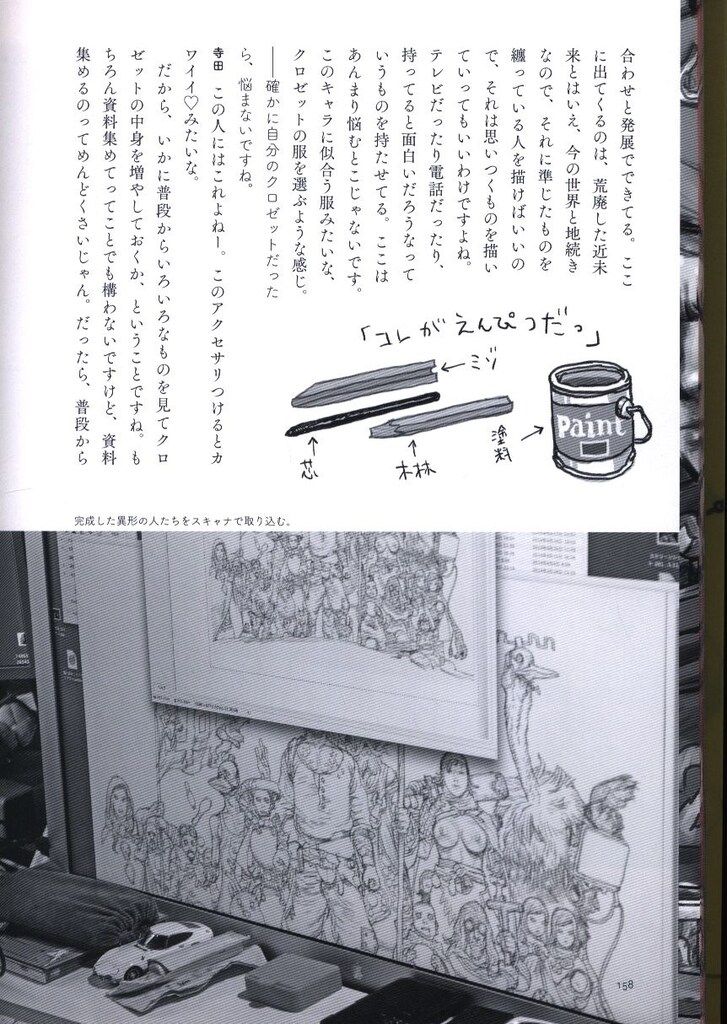 合わせと発展でできてる。ここ
に出てくるのは、荒廃した近未
来とはいえ、今の世界と地続き
なので、それに準じたものを
纏っている人を描けばいいの
で、それは思いつくものを描い
ていってもいいわけですよね。
テレビだったり電話だったり、
持ってると面白いだろうなって
いうものを持たせてる。ここは
あんまり悩むとこじゃないです。
このキャラに似合う服みたいな、
クロゼットの服を選ぶような感じ。
──確かに自分のクロゼットだった
ら、悩まないですね。
寺田　この人にはこれよねー。このアクセサリつけるとカ
ワイイ♡みたいな。
だから、いかに普段からいろいろなものを見てクロ
ゼットの中身を増やしておくか、ということですね。も
ちろん資料集めてってことでも構わないですけど、資料
集めるのってめんどくさいじゃん。だったら、普段から
「コレがえんぴつだっ」
ミゾ
芯
木材
塗料
Paint
完成した異形の人たちをスキャナで取り込む。
158